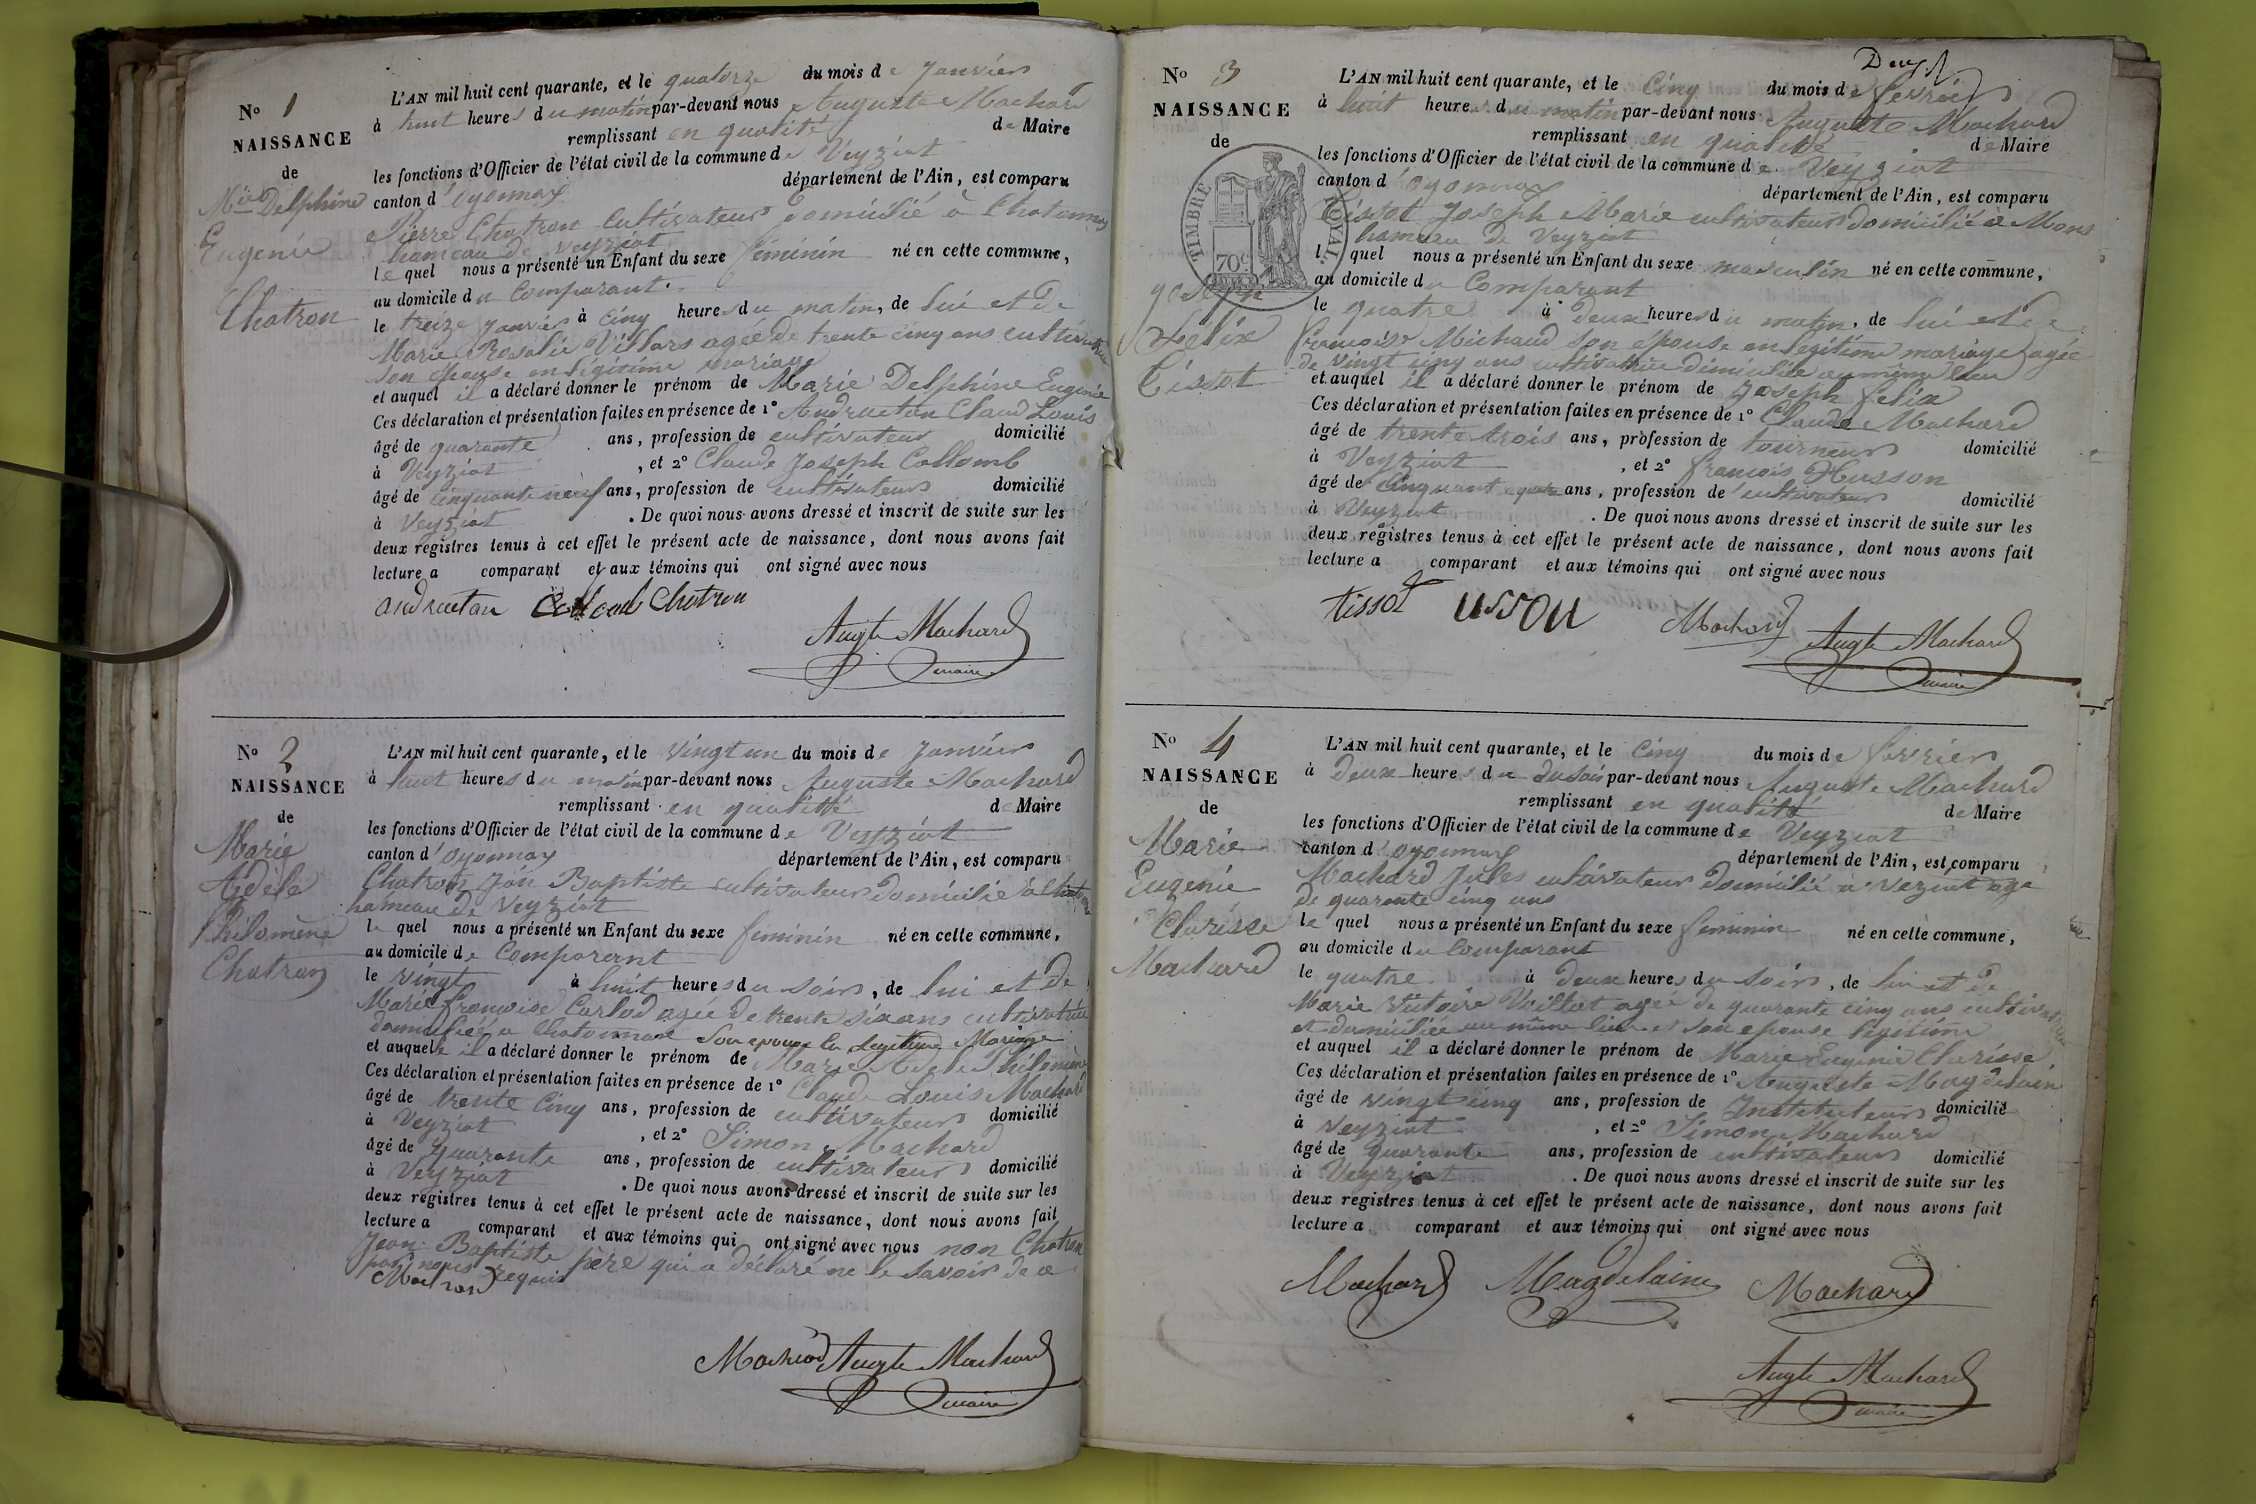 N° 1
NAISSANCE
de
Mie Delphine
Eugenie
Chatron
L'AN mil huit cent quarante, et le quatorze du mois de Janvier
à huit heures du matin par-devant nous Auguste Machard
remplissant en qualité de Maire
les fonctions d'Officier de l'état civil de la commune de Veyziat
canton d'oyonnax département de l'Ain, est comparu
Pierre Chatron Cultivateur domicilié à Chatonnax
hameau de Veyziat
le quel nous a présenté un Enfant du sexe féminin né en cette commune,
au domicile du Comparant.
le treize Janvier à Cinq heures du matin, de lui et De
Marie Rosalie Villars agée de trente cinq ans cultivatrice
son épouse en légitime mariage
et auquel il a déclaré donner le prénom de Marie Delphine Eugenie
Ces déclaration et présentation faites en présence de 1° Andructan Claud Louis
âgé de quarante ans, profession de cultivateur domicilié
à Veyziat , et 2° Claude Joseph Collomb
âgé de cinquante neuf ans, profession de cultivateur domicilié
à Veyziat . De quoi nous avons dressé et inscrit de suite sur les
deux registres tenus à cet effet le présent acte de naissance, dont nous avons fait
lecture a comparant et aux témoins qui ont signé avec nous
andructan Chatron
Augte Machard
maire
N° 2
NAISSANCE
de
Marie
Adèle
Philomène
Chatron
L'AN mil huit cent quarante, et le vingt un du mois de Janvier
à huit heures du matin par-devant nous Auguste Machard
remplissant en qualité de Maire
les fonctions d'Officier de l'état civil de la commune de Veyziat
canton d'oyonnax département de l'Ain, est comparu
Chatron Jean Baptiste cultivateur domicilié à
hameau de Veyziat
le quel nous a présenté un Enfant du sexe féminin né en cette commune,
au domicile de Comparant
le vingt à huit heures du soir, de lui et De
Marie françoise Carlod agée de trente six ans cultivatrice
domiciliée a Chatonnax Son epouse en legitime Mariage
et auquel il a déclaré donner le prénom de Marie Adele Philomène
Ces déclaration et présentation faites en présence de 1° Claude Louis Machard
âgé de trente Cinq ans, profession de cultivateur domicilié
à Veyziat , et 2° Simon Machard
âgé de quarante ans, profession de cultivateur domicilié
à Veyziat . De quoi nous avons dressé et inscrit de suite sur les
deux registres tenus à cet effet le présent acte de naissance, dont nous avons fait
lecture a comparant et aux témoins qui ont signé avec nous non Chatron
Jean Baptiste père qui a déclaré ne le savoir de ce
par nous requis
Machard
Machard Augte Machard
maire
Deux
N° 3
NAISSANCE
de
TIMBRE ROYAL
70c
Joseph
Félix
Tissot
L'AN mil huit cent quarante, et le Cinq du mois de fevrier
à huit heures du matin par-devant nous Auguste Machard
remplissant en qualité de Maire
les fonctions d'Officier de l'état civil de la commune de Veyziat
canton d'oyonnax département de l'Ain, est comparu
Tissot Joseph Marie cultivateur domicilié à Mons
hameau de Veyziat
l quel nous a présenté un Enfant du sexe masculin né en cette commune,
au domicile du Comparant
le quatre à deux heures du matin, de lui et de
françoise Michaud Son épouse en legitime mariage agée
de vingt cinq ans cultivatrice Dimiciliée au même lieu
et auquel il a déclaré donner le prénom de Joseph felix
Ces déclaration et présentation faites en présence de 1° Claude Machard
âgé de trente trois ans, profession de tourneur domicilié
à Veyziat , et 2° francois Husson
âgé de cinquant quatre ans, profession de cultivateur domicilié
à Veyziat . De quoi nous avons dressé et inscrit de suite sur les
deux registres tenus à cet effet le présent acte de naissance, dont nous avons fait
lecture a comparant et aux témoins qui ont signé avec nous
tissot usson Machard Augte Machard
maire
N° 4
NAISSANCE
de
Marie
Eugenie
Clarisse
Machard
L'AN mil huit cent quarante, et le Cinq du mois de fevrier
à Deux heures du du soir par-devant nous Auguste Machard
remplissant en qualité de Maire
les fonctions d'Officier de l'état civil de la commune de Veyziat
canton d'oyonnax département de l'Ain, est comparu
Machard Jules cultivateur domicilié à Veziat age
de quarante cinq ans
le quel nous a présenté un Enfant du sexe feminin né en cette commune,
au domicile du Comparant
le quatre à deux heures du soir, de lui et de
Marie Victoire agée de quarante cinq ans cultivatrice
et domiciliée au même lieu et son epouse legitime
et auquel il a déclaré donner le prénom de Marie Eugenie Clarisse
Ces déclaration et présentation faites en présence de 1° Auguste Magdelain
âgé de vingt cinq ans, profession de Instituteur domicilié
à Veyziat , et 2° Simon Machard
âgé de quarante ans, profession de cultivateur domicilié
à Veyziat . De quoi nous avons dressé et inscrit de suite sur les
deux registres tenus à cet effet le présent acte de naissance, dont nous avons fait
lecture a comparant et aux témoins qui ont signé avec nous
Machard Magdelaine Machard
Augte Machard
maire